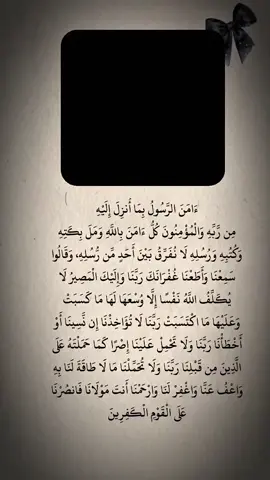 ءَامَنَ الرَّسُولُ بِمَا أُنزِلَ إِلَيْهِ
مِن رَّبِّهِ وَالْمُؤْمِنُونَ كُلٌّ ءَامَنَ بِاللَّهِ وَمَلَٰٓئِكَتِهِ
وَكُتُبِهِ وَرُسُلِهِ لَا نُفَرِّقُ بَيْنَ أَحَدٍ مِّن رُّسُلِهِ، وَقَالُوا
سَمِعْنَا وَأَطَعْنَا غُفْرَانَكَ رَبَّنَا وَإِلَيْكَ الْمَصِيرُ لَا
يُكَلِّفُ اللَّهُ نَفْسًا إِلَّا وُسْعَهَا لَهَا مَا كَسَبَتْ
وَعَلَيْهَا مَا اكْتَسَبَتْ رَبَّنَا لَا تُؤَاخِذْنَا إِن نَّسِينَا أَوْ
أَخْطَأْنَا رَبَّنَا وَلَا تَحْمِلْ عَلَيْنَا إِصْرًا كَمَا حَمَلْتَهُ عَلَى
الَّذِينَ مِن قَبْلِنَا رَبَّنَا وَلَا تُحَمِّلْنَا مَا لَا طَاقَةَ لَنَا بِهِ
وَاعْفُ عَنَّا وَاغْفِرْ لَنَا وَارْحَمْنَا أَنتَ مَوْلَانَا فَانصُرْنَا
عَلَى الْقَوْمِ الْكَٰفِرِينَ